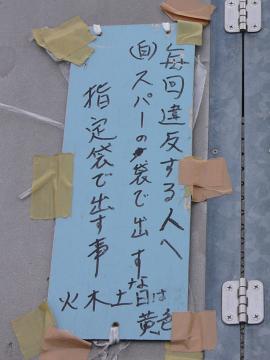 毎回違反する人へ
(白)スパーの袋で出すな
指定袋で出す事
火木土日は
黄色